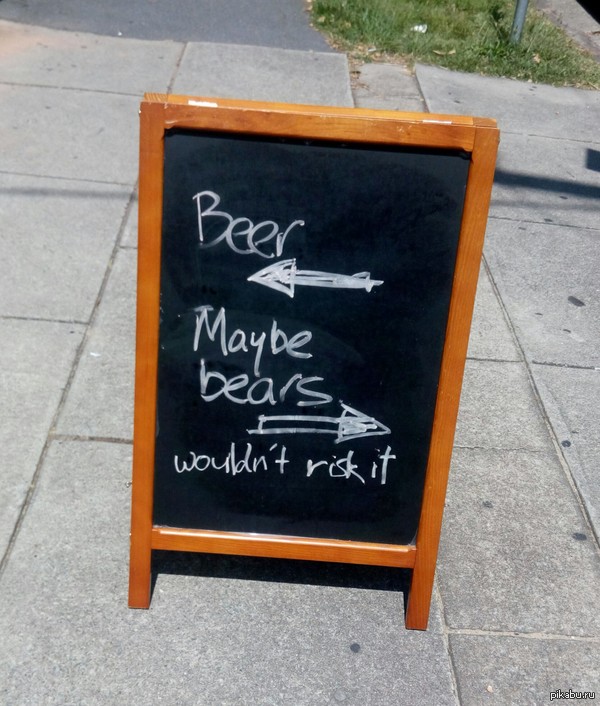 Beer
Maybe
bears
wouldn't risk it
pikabu.ru